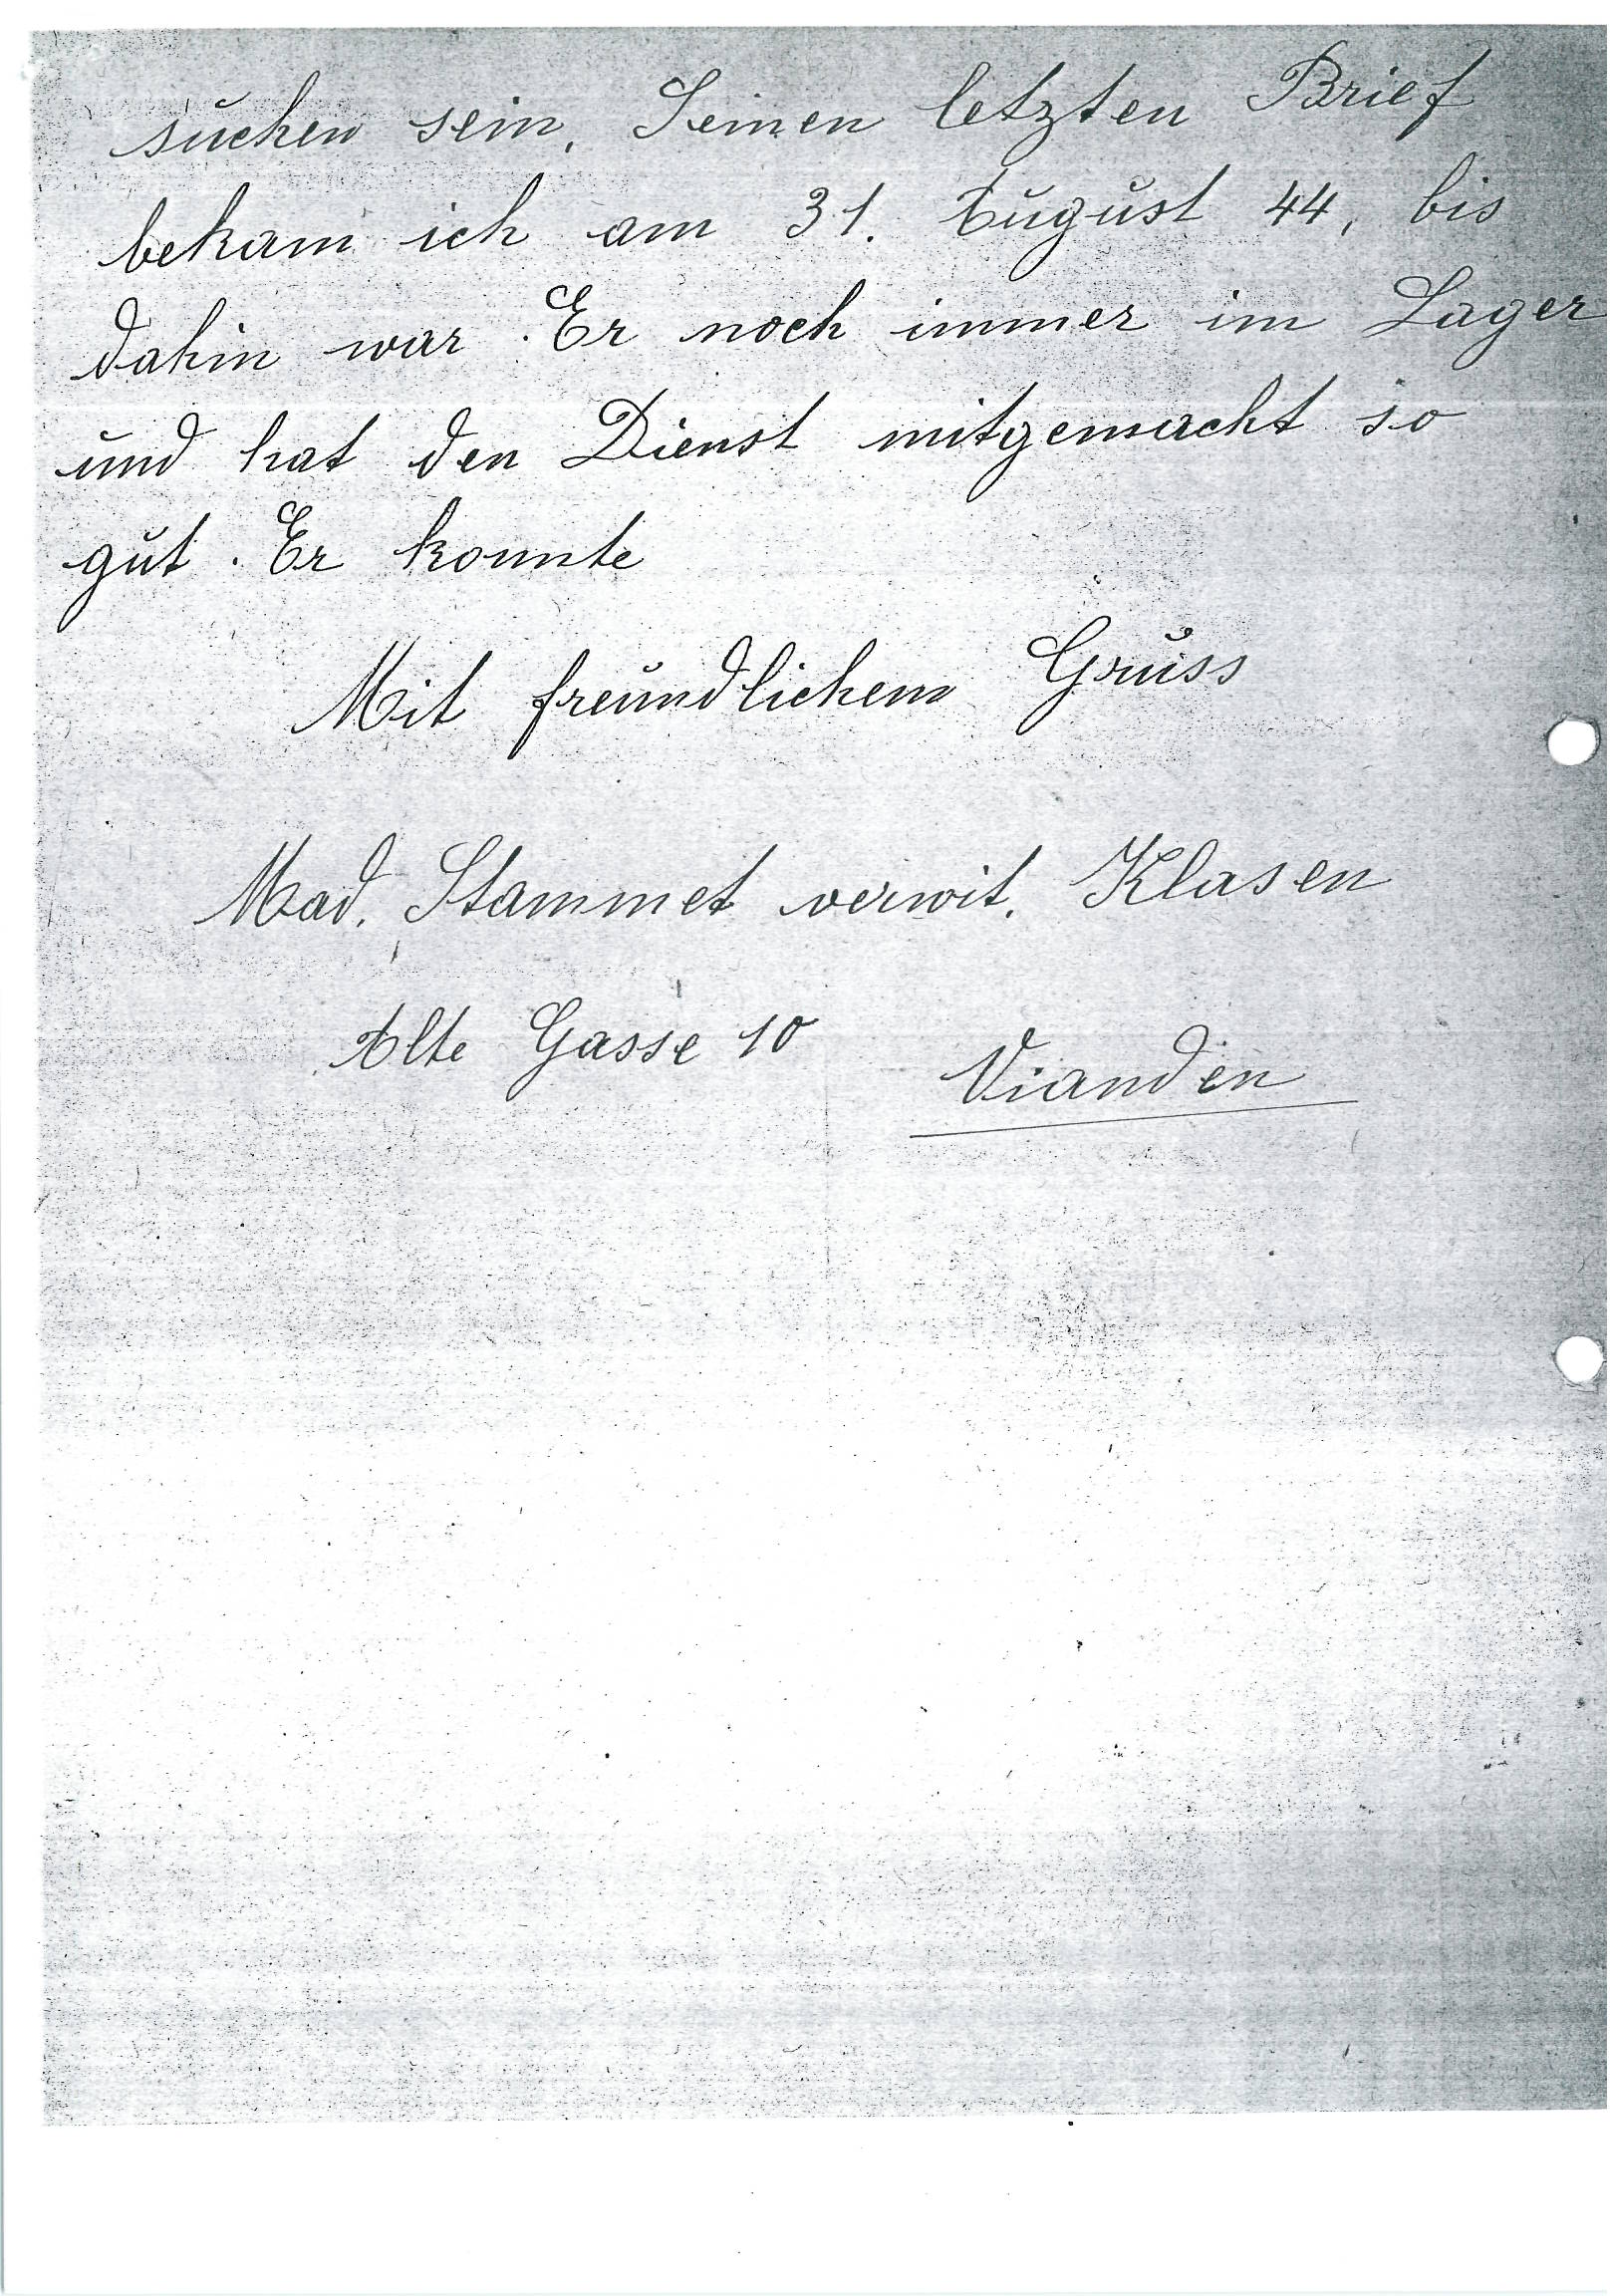 suchen sein, Seinen letzten Brief
bekam ich am 31. August 44, bis
dahin war. Er noch immer im Lager
und hat den Dienst mitgemacht so
gut. Er konnte
Mit freundlichem Gruss
Mad. Stammet verwit. Klasen
Alte Gasse 10
Vianden